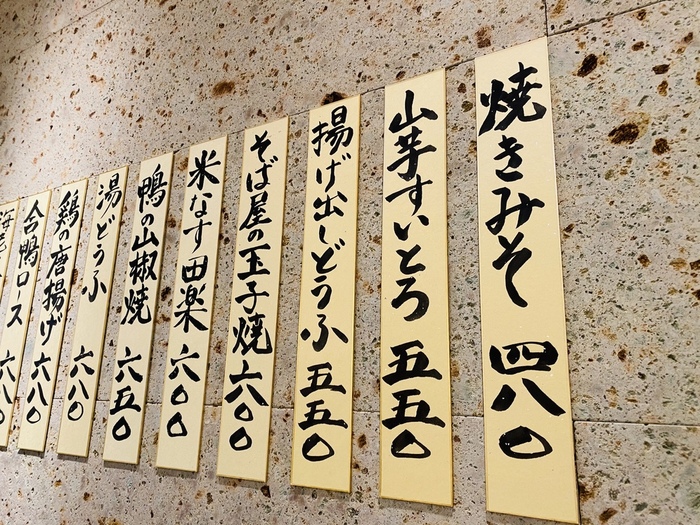 焼きみそ 四八〇
山芋すいとろ 五五〇
揚げ出しどうふ 五五〇
そば屋の玉子焼 六〇〇
米なす田楽 六〇〇
鴨の山椒焼 六五〇
湯どうふ 六八〇
鶏の唐揚げ 六八〇
合鴨ロース 六八〇